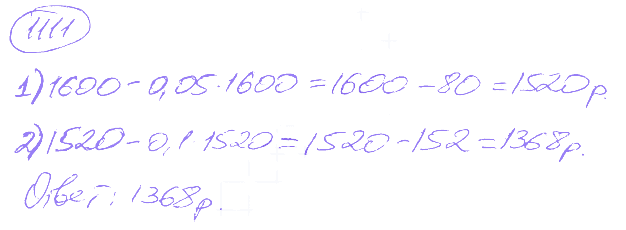 1111
1) 1600 - 0,05·1600 = 1600 - 80 = 1520р.
2) 1520 - 0,1 1520 = 1520 - 152 = 1368р.
Ответ: 1368р.